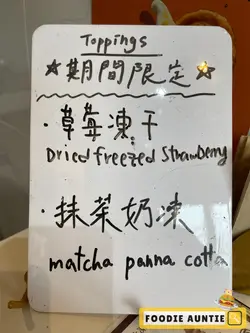 Toppings
☆期間限定☆
· 草莓凍干
Dried freezed strawberry
· 抹茶奶凍
matcha panna cotta
FOODIE AUNTIE